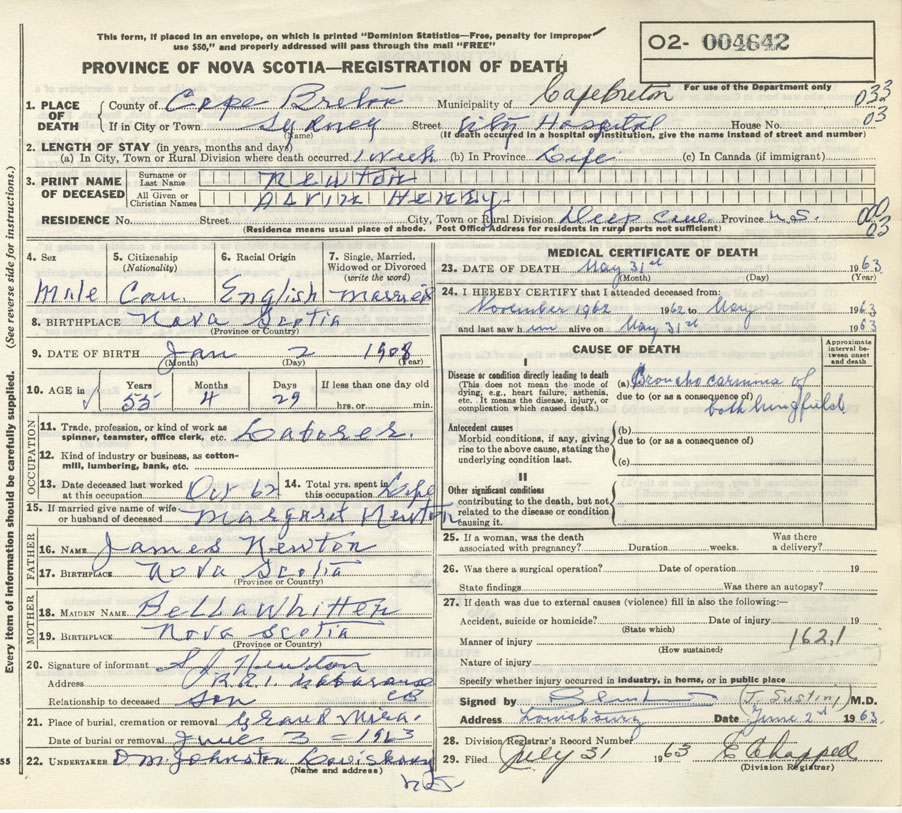 This form, if placed in an envelope, on which is printed "Dominion Statistics—Free, penalty for improper
use $50," and properly addressed will pass through the mail "FREE"
02- 004642
PROVINCE OF NOVA SCOTIA—REGISTRATION OF DEATH
For use of the Department only
1. PLACE OF DEATH { County of Cape Breton Municipality of Cape Breton 033
If in City or Town Sydney Street City Hospital House No. 03
(Name) (If death occurred in a hospital or institution, give the name instead of street and number)
2. LENGTH OF STAY (in years, months and days)
(a) In City, Town or Rural Division where death occurred 1 week (b) In Province Life (c) In Canada (if immigrant)
3. PRINT NAME OF DECEASED { Surname or Last Name Newton
All Given or Christian Names Henry
RESIDENCE No. Street City, Town or Rural Division Deep Cove Province N.S. 000
03
(Residence means usual place of abode. Post Office Address for residents in rural parts not sufficient)
4. Sex 5. Citizenship (Nationality) 6. Racial Origin 7. Single, Married, Widowed or Divorced (write the word)
Male Can. English Married
8. BIRTHPLACE Nova Scotia
(Province or Country)
9. DATE OF BIRTH Jan 2 1908
(Month) (Day) (Year)
10. AGE in Years Months Days If less than one day old
55 4 29 hrs. or min.
OCCUPATION
11. Trade, profession, or kind of work as spinner, teamster, office clerk, etc. Laborer.
12. Kind of industry or business, as cotton-mill, lumbering, bank, etc.
13. Date deceased last worked at this occupation Oct 62 14. Total yrs. spent in this occupation Life
15. If married give name of wife or husband of deceased Margaret Newton
FATHER
16. NAME James Newton
17. BIRTHPLACE Nova Scotia
(Province or Country)
MOTHER
18. MAIDEN NAME Bella Whitten
19. BIRTHPLACE Nova Scotia
(Province or Country)
20. Signature of informant S J Newton
Address R.R.1. Gabarouse CB
Relationship to deceased Son
21. Place of burial, cremation or removal Grand Mira.
Date of burial or removal June 3 = 1963
22. UNDERTAKER D.M. Johnston Louisbourg
(Name and address)
N.S.
MEDICAL CERTIFICATE OF DEATH
23. DATE OF DEATH May 31st 1963
(Month) (Day) (Year)
24. I HEREBY CERTIFY that I attended deceased from:
November 1962 1962 to May 1963
and last saw him alive on May 31st 1963
CAUSE OF DEATH
Approximate interval between onset and death
I
Disease or condition directly leading to death
(This does not mean the mode of dying, e.g., heart failure, asthenia, etc. It means the disease, injury, or complication which caused death.)
(a) Broncho carcinoma of
due to (or as a consequence of) both lungfields
Antecedent causes
Morbid conditions, if any, giving rise to the above cause, stating the underlying condition last.
(b)
due to (or as a consequence of)
(c)
II
Other significant conditions
contributing to the death, but not related to the disease or condition causing it.
25. If a woman, was the death associated with pregnancy? Duration weeks. Was there a delivery?
26. Was there a surgical operation? Date of operation 19
State findings Was there an autopsy?
27. If death was due to external causes (violence) fill in also the following:—
Accident, suicide or homicide? Date of injury 19
(State which)
Manner of injury 162,1
(How sustained)
Nature of injury
Specify whether injury occurred in industry, in home, or in public place
Signed by M.D.
Address Louisbourg Date June 2nd 1963.
28. Division Registrar's Record Number
29. Filed July 31 1963 E Chappell
(Division Registrar)
Every item of information should be carefully supplied. (See reverse side for instructions.)
55